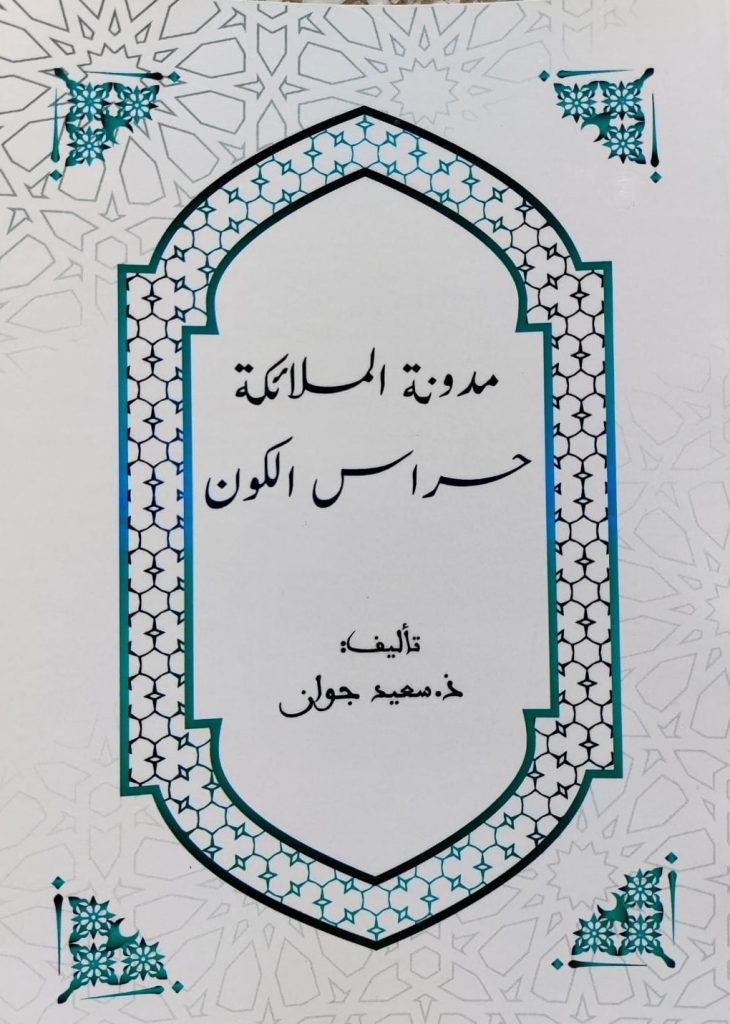 مدونة الملائكة
حراس الكون
تأليف:
ذ.سعيد جوان